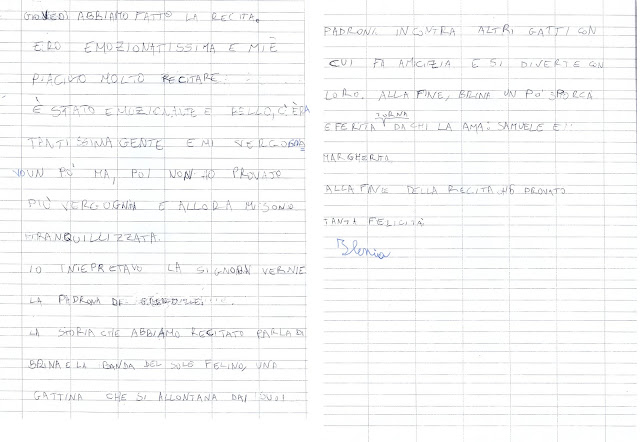 GIOVEDÌ ABBIAMO FATTO LA RECITA.
ERO EMOZIONATISSIMA E MI È
PIACIUTO MOLTO RECITARE.
È STATO EMOZIONANTE E BELLO, C'ERA
TANTISSIMA GENTE E MI VERGOGNA
VO UN PO' MA, POI NON HO PROVATO
PIÙ VERGOGNIA E ALLORA MI SONO
TRANQUILLIZZATA.
IO INTEPRETAVO LA SIGNORA VERNIE
LA PADRONA DI
LA STORIA CHE ABBIAMO RECITATO PARLA DI
BRINA E LA BANDA DEL SOLE FELINO, UNA
GATTINA CHE SI ALLONTANA DAI SUOI
PADRONI. INCONTRA ALTRI GATTI CON
CUI FA AMICIZIA E SI DIVERTE CON
LORO. ALLA FINE, BRINA UN PO' SPORCA
E FERITA TORNA DA CHI LA AMA: SAMUELE E
MARGHERITA
ALLA FINE DELLA RECITA HO PROVATO
TANTA FELICITÀ
Blenia